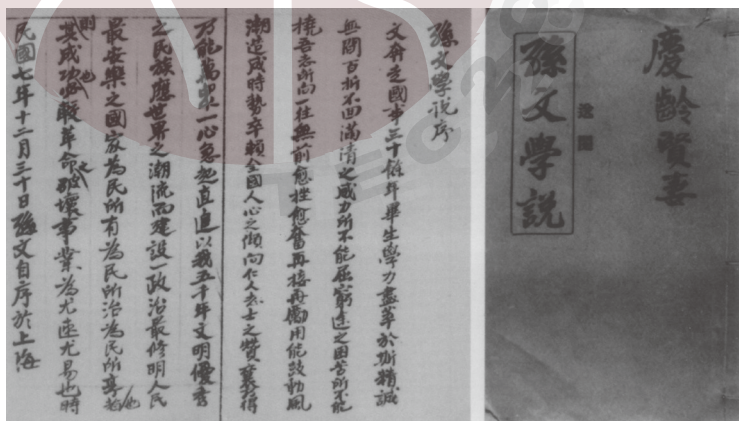 慶齡賢妻
孫文學說
孫文學說序
文奔走國事三十餘年畢生學力盡萃於斯精誠
無間百折不回滿清之威力所不能屈窮途之困苦所不能
撓吾志所向一往無前愈挫愈奮再接再勵用能鼓動風
潮造成時勢卒賴全國人心之傾向仁人志士之贊襄得
乃能萬衆一心急起直追以我五千年文明優秀
之民族應世界之潮流而建設一政治最修明人民
最安樂之國家為民所有為民所治為民所享者也
則其成功必較革命之破壞事業為尤速尤易也時
民國七年十二月三十日孫文自序於上海